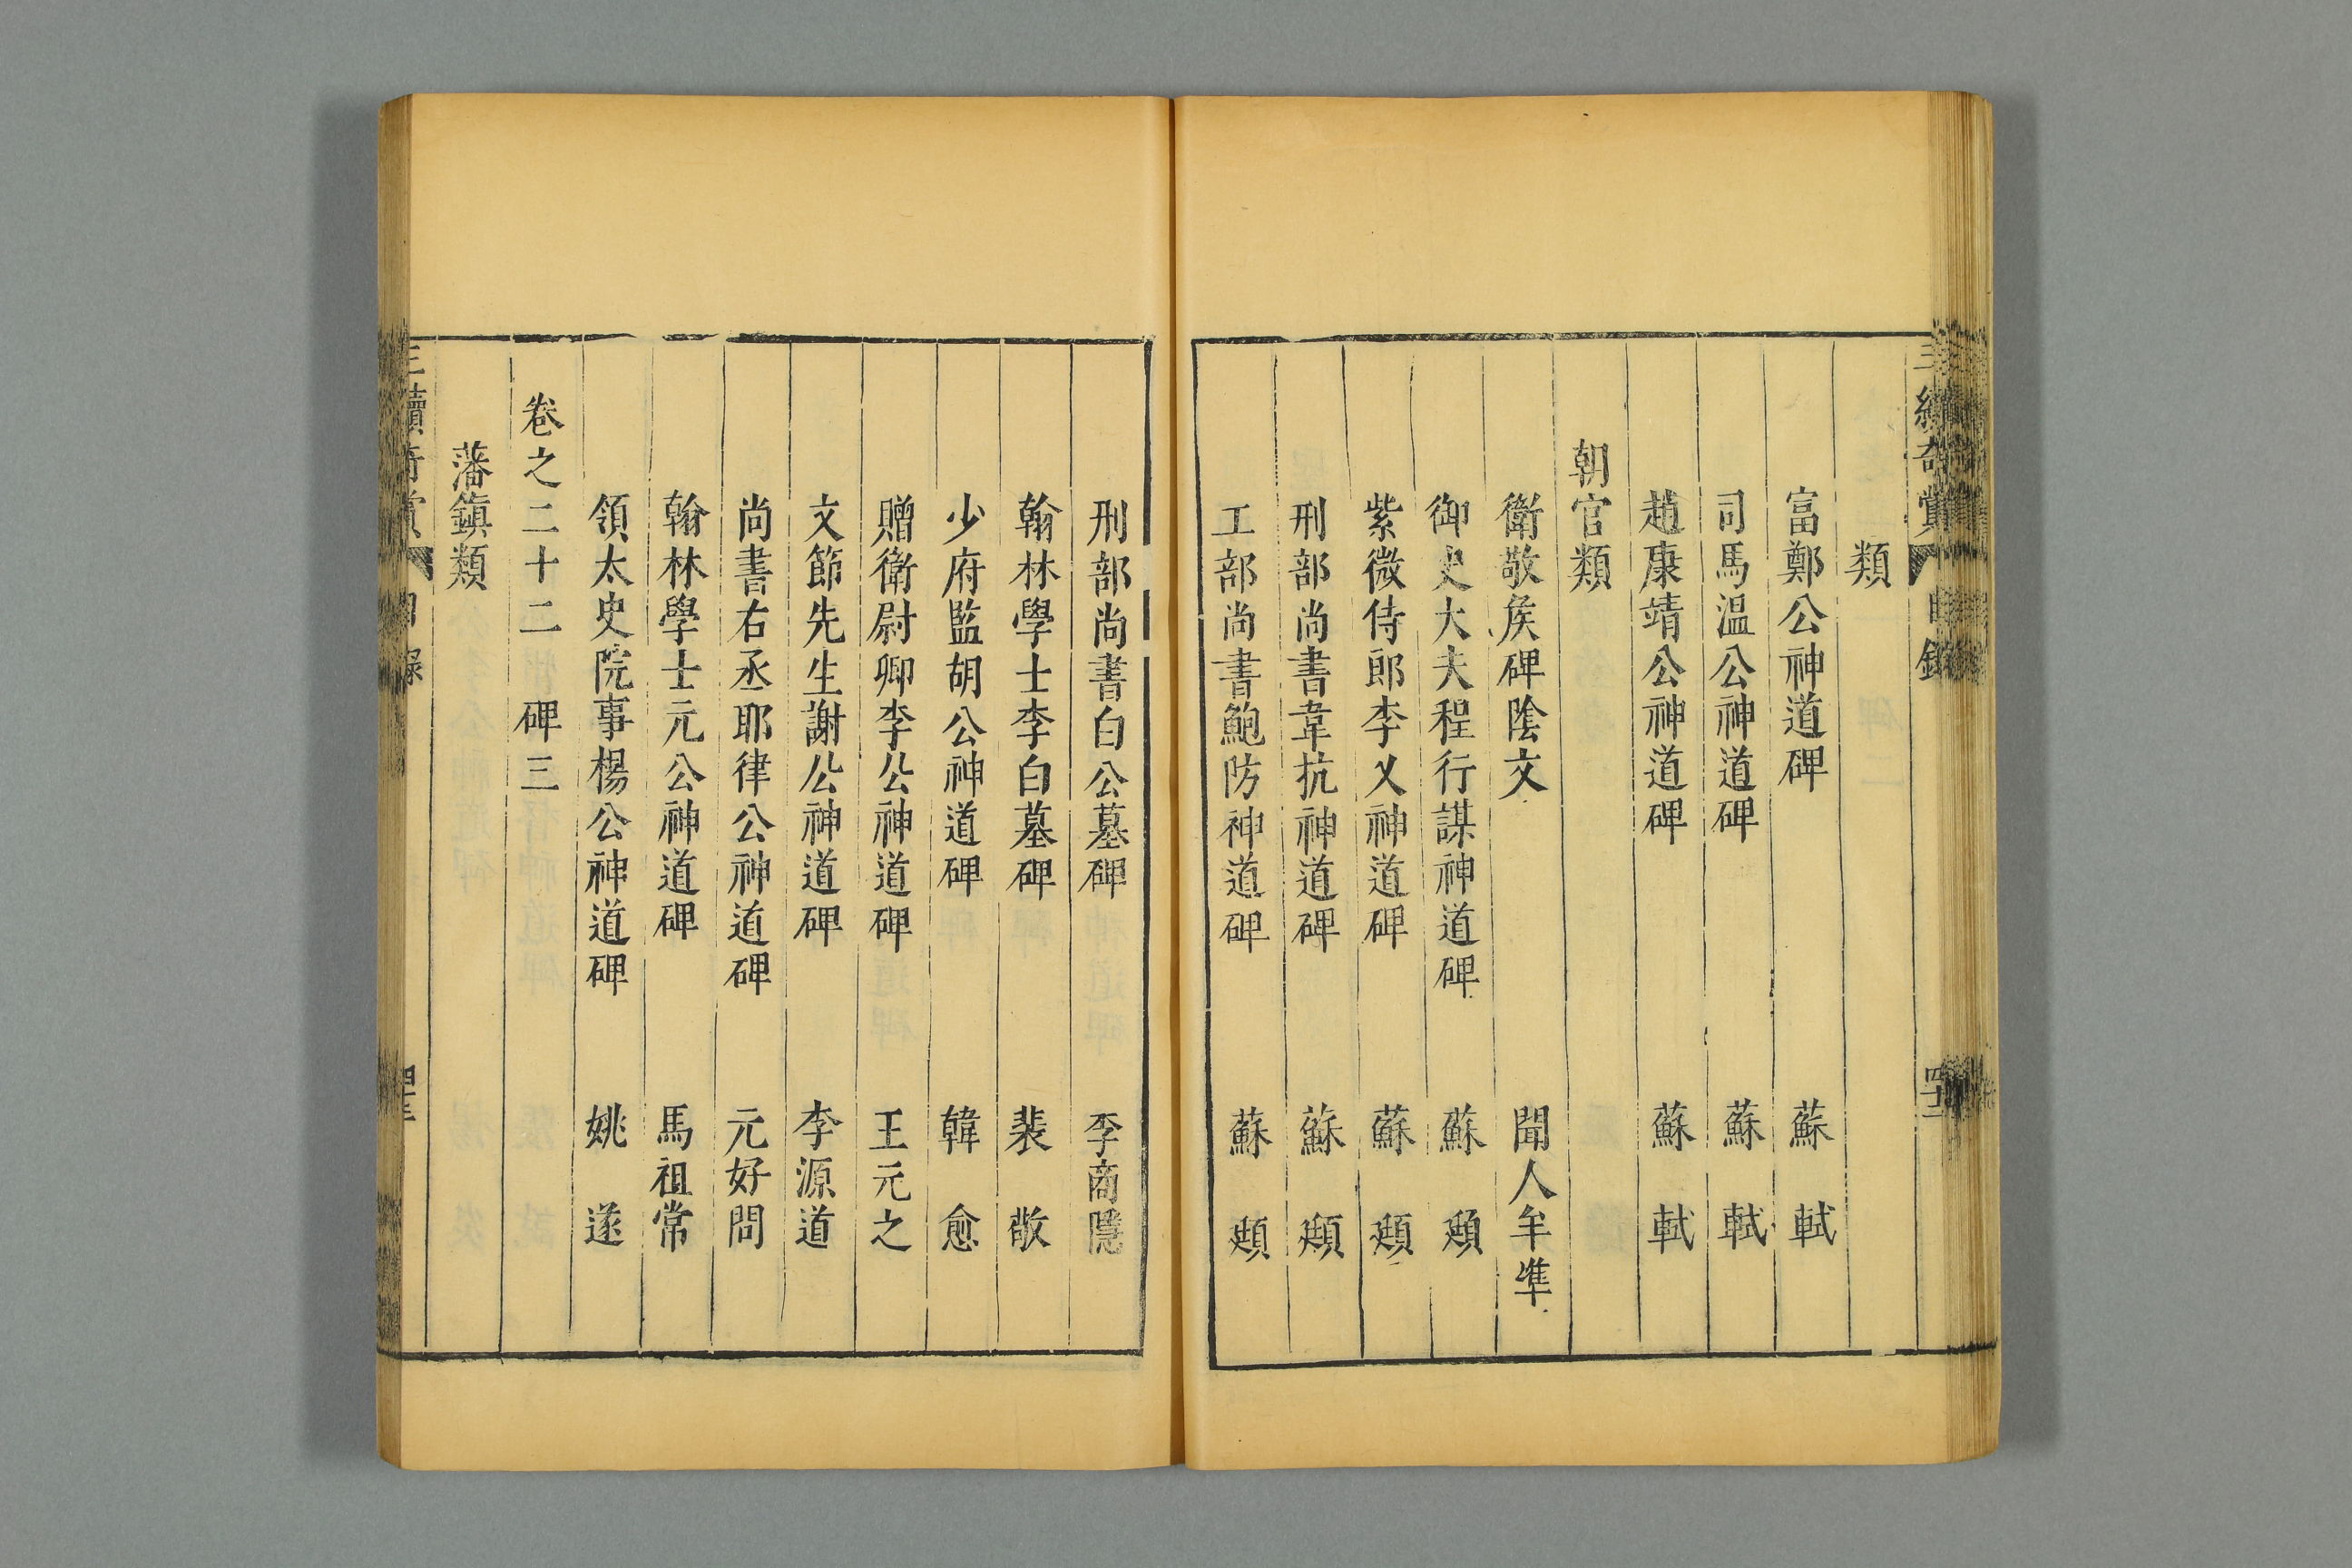 三續奇賞 目錄 四十二
類
富鄭公神道碑 蘇軾
司馬溫公神道碑 蘇軾
趙康靖公神道碑 蘇軾
朝官類
衛敬矦碑陰文 聞人牟準
御史大夫程行謀神道碑 蘇頲
紫微侍郎李乂神道碑 蘇頲
刑部尚書韋抗神道碑 蘇頲
工部尚書鮑防神道碑 蘇頲
刑部尚書白公墓碑 李商隱
翰林學士李白墓碑 裴敬
少府監胡公神道碑 韓愈
贈衛尉卿李公神道碑 王元之
文節先生謝公神道碑 李源道
尚書右丞耶律公神道碑 元好問
翰林學士元公神道碑 馬祖常
領太史院事楊公神道碑 姚遂
卷之二十二 碑三
藩鎮類
三續奇賞 目錄